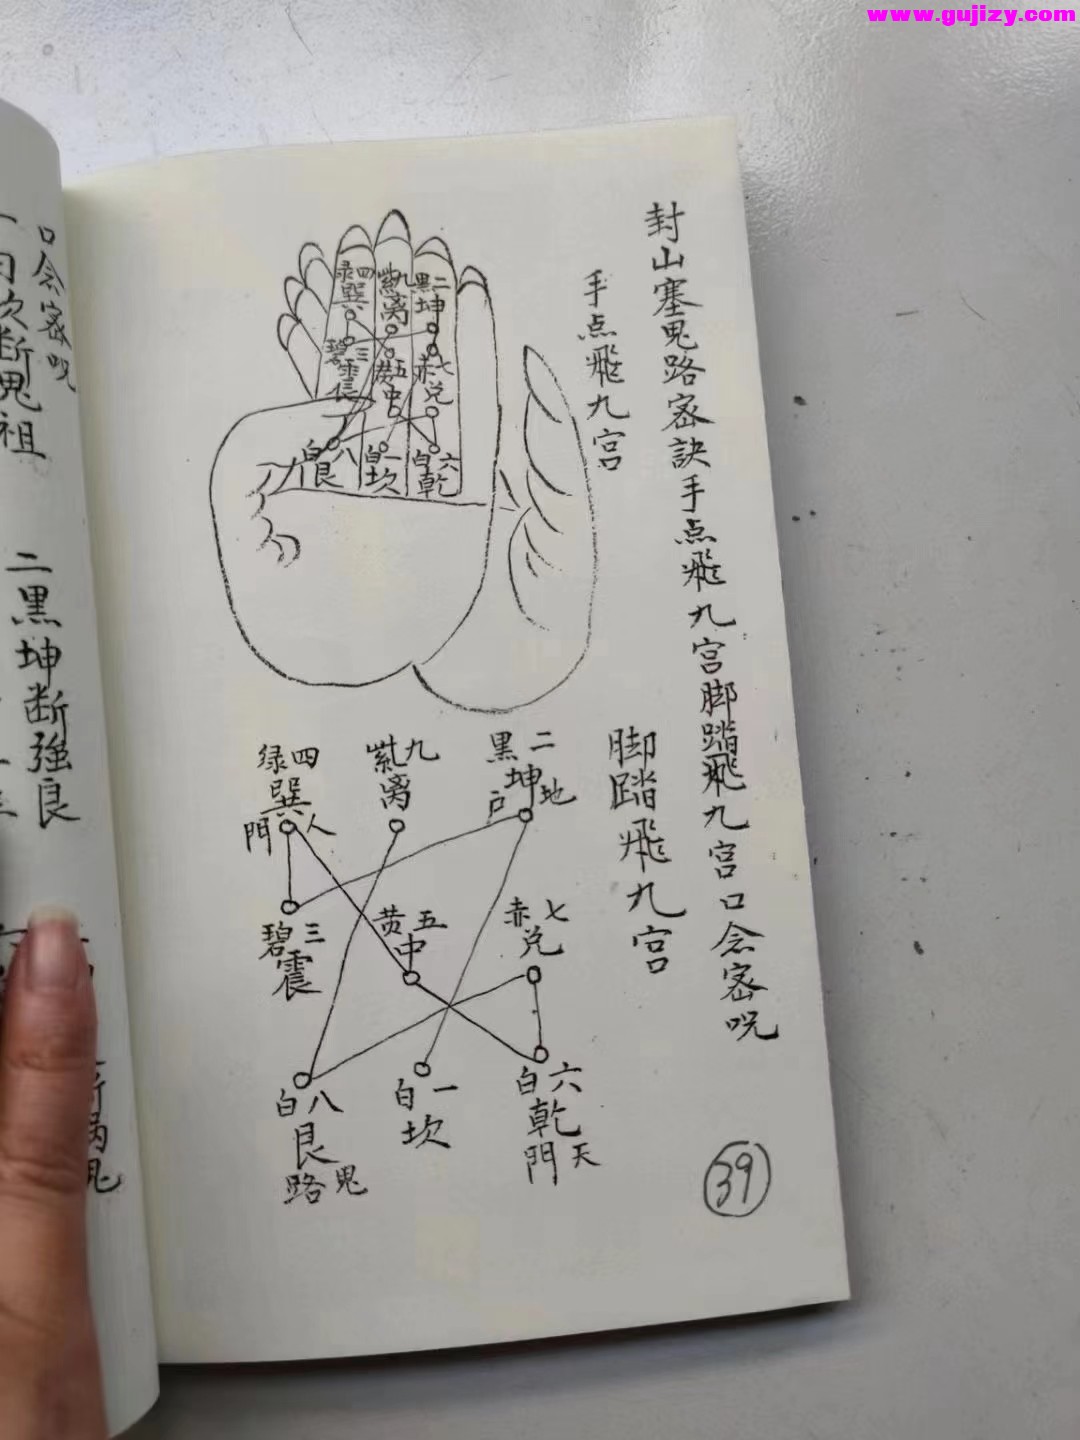 www.gujizy.com
封山塞鬼路密訣手点飛九宮脚踏飛九宮口念密呪
手点飛九宮
二黑坤
九紫离
四绿巽
七赤兑
五黄中
三碧震
六白乾
一白坎
八白艮
脚踏飛九宮
二黑坤地户
九紫离
四绿巽人門
七赤兑
五黄中
三碧震
六白乾天門
一白坎
八白艮鬼路
39
口念密呪
二黑坤断強良
断鬼祖